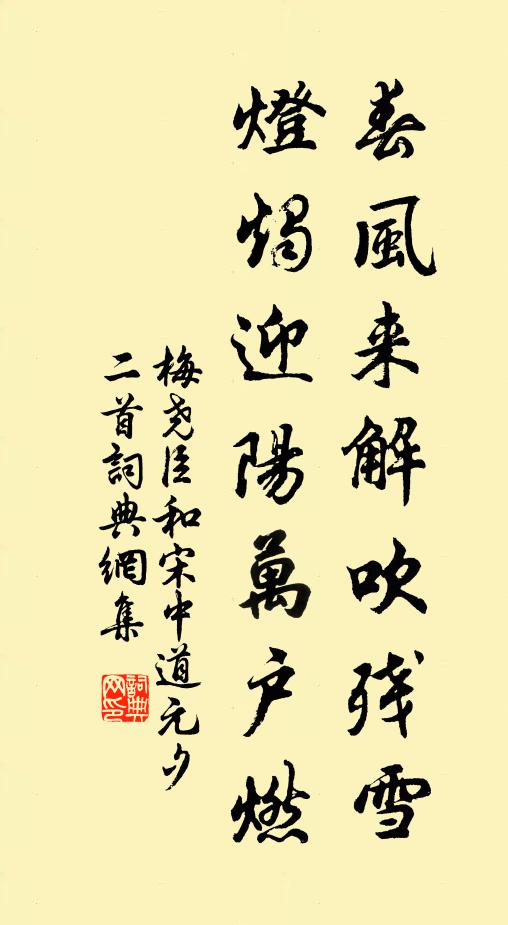 春風来解吹残雪
燈燭迎陽萬户燃
梅尧臣和宋中道元夕
二首詞典網集
詞典
网印